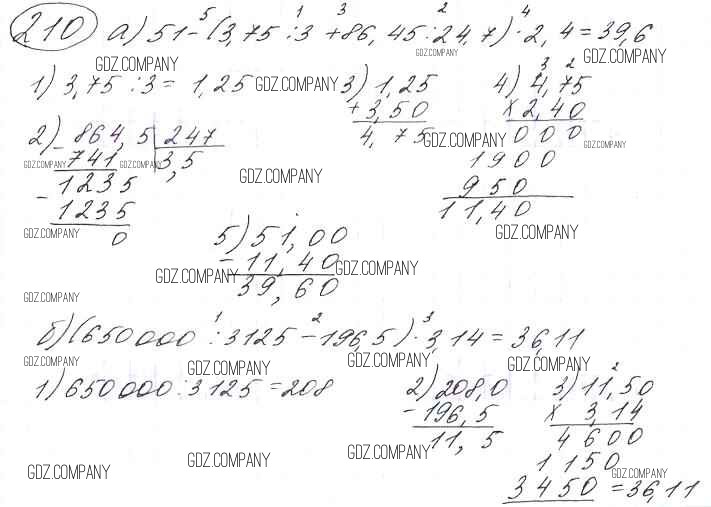 210 а) 51-(3,75:3+86,45:24,7)·2,4=39,6
5 1 3 2 4
GDZ.COMPANY GDZ.COMPANY
1) 3,75:3=1,25 GDZ.COMPANY 3) 1,25 4) 4,75
+3,50 ×2,40
4,75 000
GDZ.COMPANY GDZ.COMPANY
2) -864,5 247 1900
741 3,5 950
GDZ.COMPANY GDZ.COMPANY GDZ.COMPANY
-1235 11,40
1235
GDZ.COMPANY 0 GDZ.COMPANY
5) 51,00
-11,40
GDZ.COMPANY GDZ.COMPANY
39,60
GDZ.COMPANY
б) (650000:3125-196,5)·3,14=36,11
1 2 3
GDZ.COMPANY GDZ.COMPANY GDZ.COMPANY GDZ.COMPANY
1) 650000:3125=208 2) 208,0 3) 11,50
-196,5 × 3,14
11,5 4600
1150
3450 =36,11
GDZ.COMPANY GDZ.COMPANY GDZ.COMPANY GDZ.COMPANY